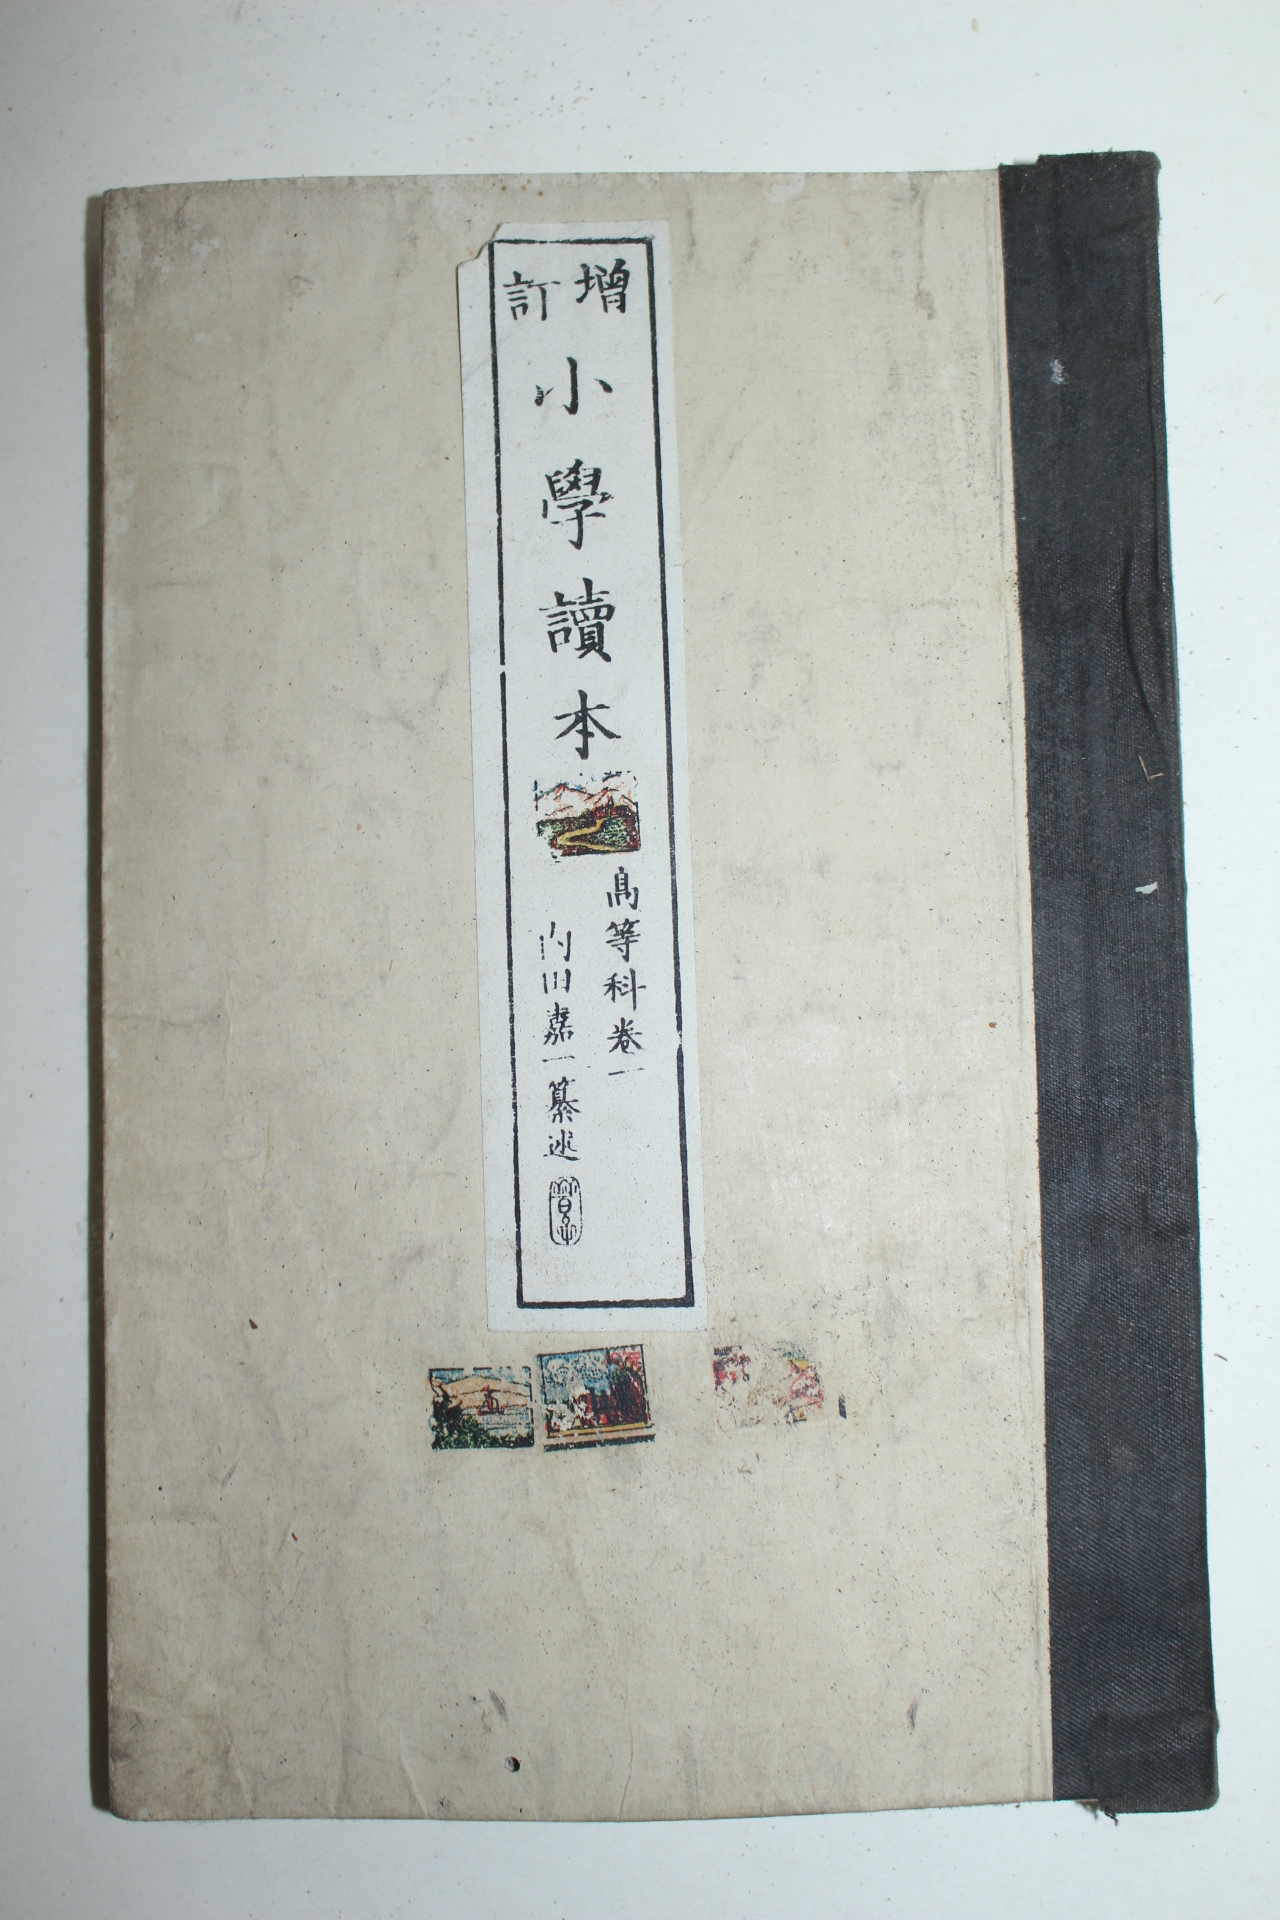 增訂
小學讀本
高等科卷一
内田嘉一纂述